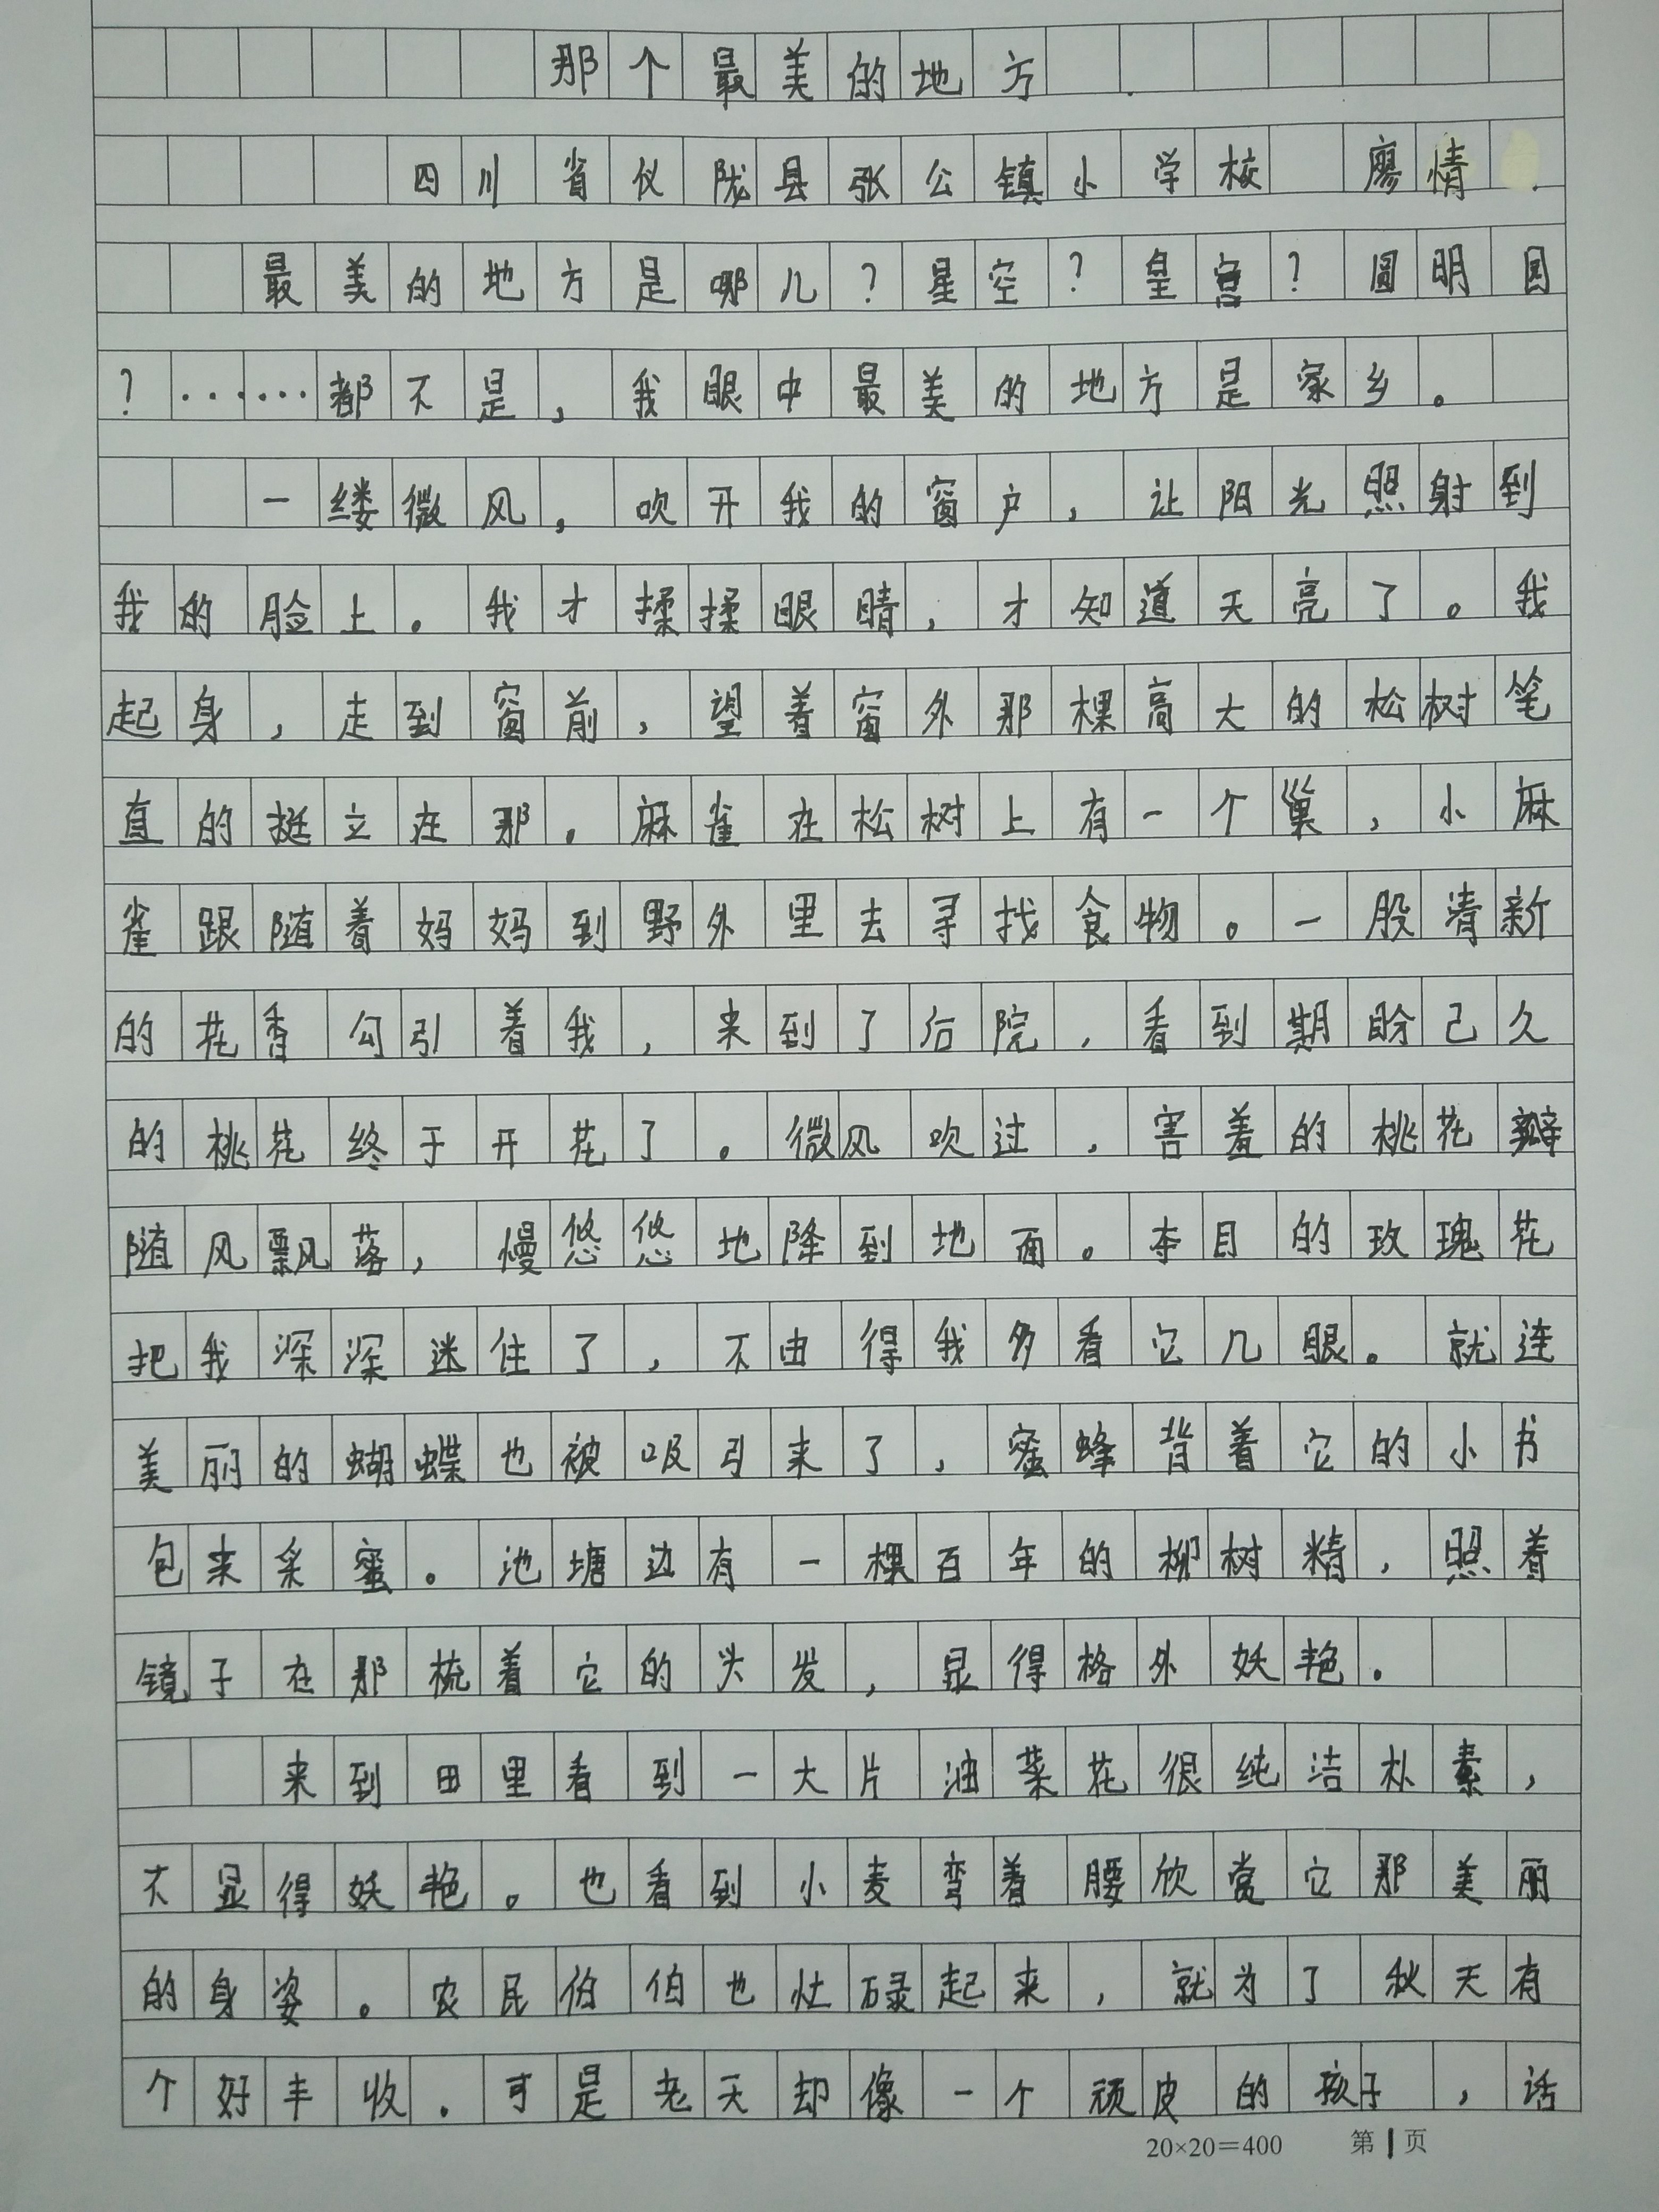 那个最美的地方
四川省仪陇县张公镇小学校 廖情
最美的地方是哪儿?星空?皇宫?圆明园
?……都不是,我眼中最美的地方是家乡。
一缕微风,吹开我的窗户,让阳光照射到
我的脸上。我才揉揉眼睛,才知道天亮了。我
起身,走到窗前,望着窗外那棵高大的松树笔
直的挺立在那。麻雀在松树上有一个巢,小麻
雀跟随着妈妈到野外里去寻找食物。一股清新
的花香勾引着我,来到了后院,看到期盼己久
的桃花终于开花了。微风吹过,害羞的桃花瓣
随风飘落,慢悠悠地降到地面。夺目的玫瑰花
把我深深迷住了,不由得我多看它几眼。就连
美丽的蝴蝶也被吸引来了,蜜蜂背着它的小书
包来采蜜。池塘边有一棵百年的柳树精,照着
镜子在那梳着它的头发,显得格外妖艳。
来到田里看到一大片油菜花很纯洁朴素,
不显得妖艳。也看到小麦弯着腰欣赏它那美丽
的身姿。农民伯伯也忙碌起来,就为了秋天有
个好丰收。可是老天却像一个顽皮的孩子,话
20×20=400 第1页